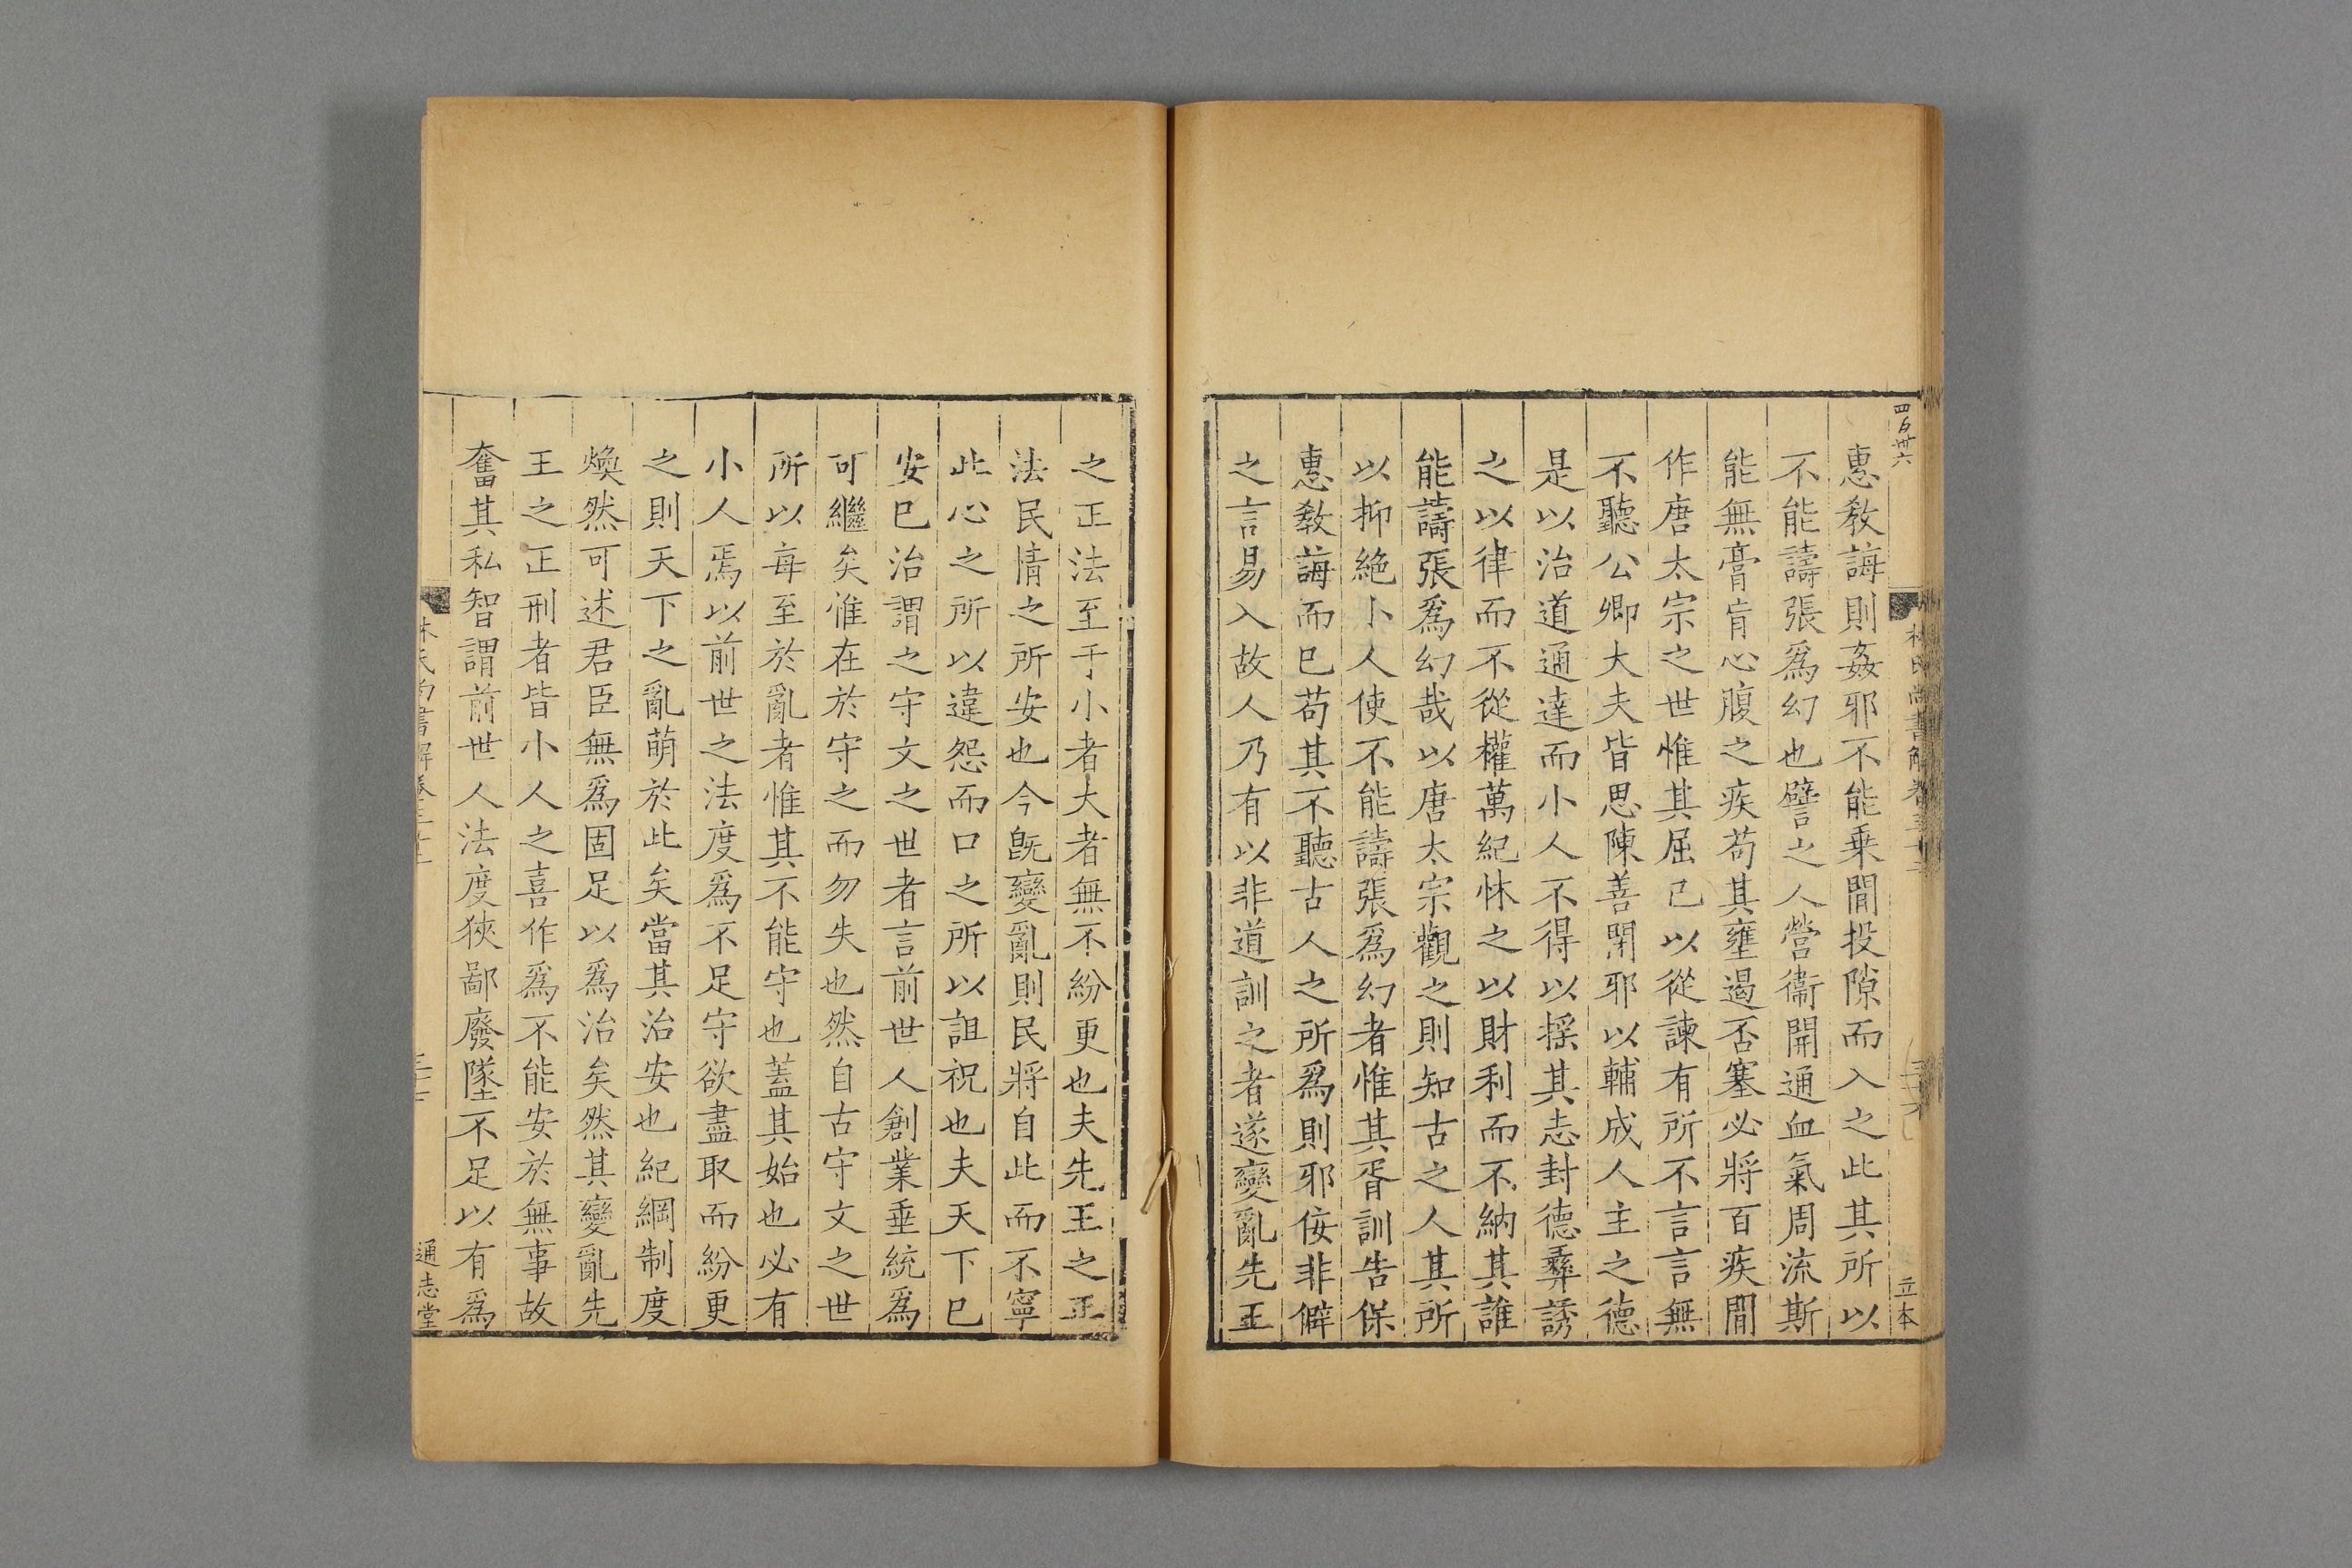 四百卅六
惠敎誨則姦邪不能乗間投隙而入之此其所以
不能譸張爲幻也譬之人營衞開通血氣周流斯
能無膏肓心腹之疾苟其壅遏否塞必將百疾間
作唐太宗之世惟其屈己以從諫有所不言言無
不聽公卿大夫皆思陳善閉邪以輔成人主之德
是以治道通達而小人不得以揺其志封德彞誘
之以律而不從權萬紀怵之以財利而不納其誰
能譸張爲幻哉以唐太宗觀之則知古之人其所
以抑絶小人使不能譸張爲幻者惟其胥訓告保
惠敎誨而已苟其不聽古人之所爲則邪侫非僻
之言易入故人乃有以非道訓之者遂變亂先王
立本
之正法至于小者大者無不紛更也夫先王之正
法民情之所安也今旣變亂則民將自此而不寧
此心之所以違怨而口之所以詛祝也夫天下已
安已治謂之守文之世者言前世人創業垂統爲
可繼矣惟在於守之而勿失也然自古守文之世
所以每至於亂者惟其不能守也蓋其始也必有
小人焉以前世之法度爲不足守欲盡取而紛更
之則天下之亂萌於此矣當其治安也紀綱制度
煥然可述君臣無爲固足以爲治矣然其變亂先
王之正刑者皆小人之喜作爲不能安於無事故
奮其私智謂前世人法度狹鄙廢墜不足以有爲
通志堂